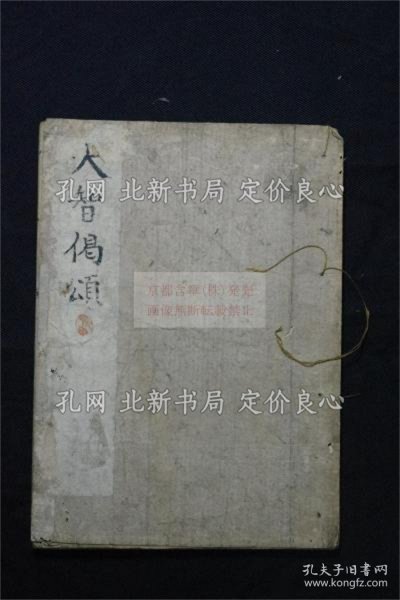 大智偈頌
孔网 北新书局 定价良心
京都古章(株)発売
画像無断転載禁止
孔网 北新书局 定价良心
孔夫子旧书网
www.kongfz.com